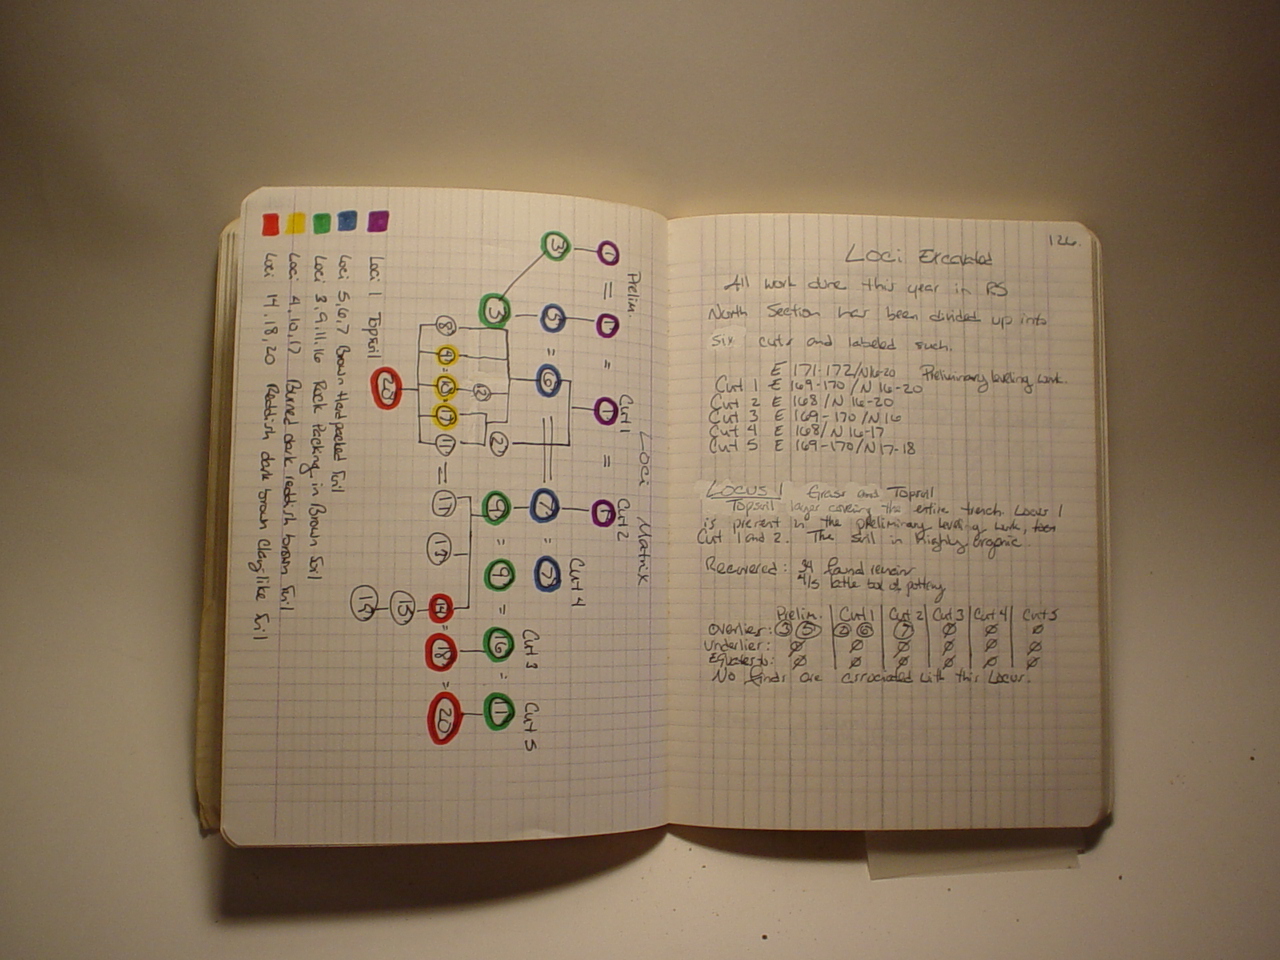 Loci Matrix
Prelim. Cut 1 Cut 2 Cut 4 Cut 3 Cut 5
1 = 1 = 1 = 1
3 5 = 6 = 7 = 7
3 2 9 = 9 = 16 = 11
8 4 = 10 = 17 11 = 14 = 18 = 20
15
Loci 1 Topsoil
Loci 5,6,7 Brown Hard packed Soil
Loci 3,9,11,16 Rock Packing in Brown Soil
Loci 4,10,17 Burned dark reddish brown Soil
Loci 14,18,20 Reddish dark brown Clay like Soil
126.
Loci Excavated
All work done this year in RS
North Section has been divided up into
Six cuts and labeled such.
E 171-172/N16-20 Preliminary leveling work.
Cut 1 E 169-170/N 16-20
Cut 2 E 168/N 16-20
Cut 3 E 169-170/N16
Cut 4 E 168/N 16-17
Cut 5 E 169-170/N17-18
Locus 1 Grass and Topsoil
Topsoil layer covering the entire trench. Locus 1
is present in the preliminary leveling work,
Cut 1 and 2. The soil in Highly Organic.
Recovered: 34 found remains
4/5 bottle of pottery
Prelim. Cut 1 Cut 2 Cut 3 Cut 4 Cut 5
Overlies: 3 5 2 6 7 Ø Ø Ø
Underlies: Ø Ø Ø Ø Ø Ø
Equates to: Ø Ø Ø Ø Ø Ø
No finds are associated with this Locus.